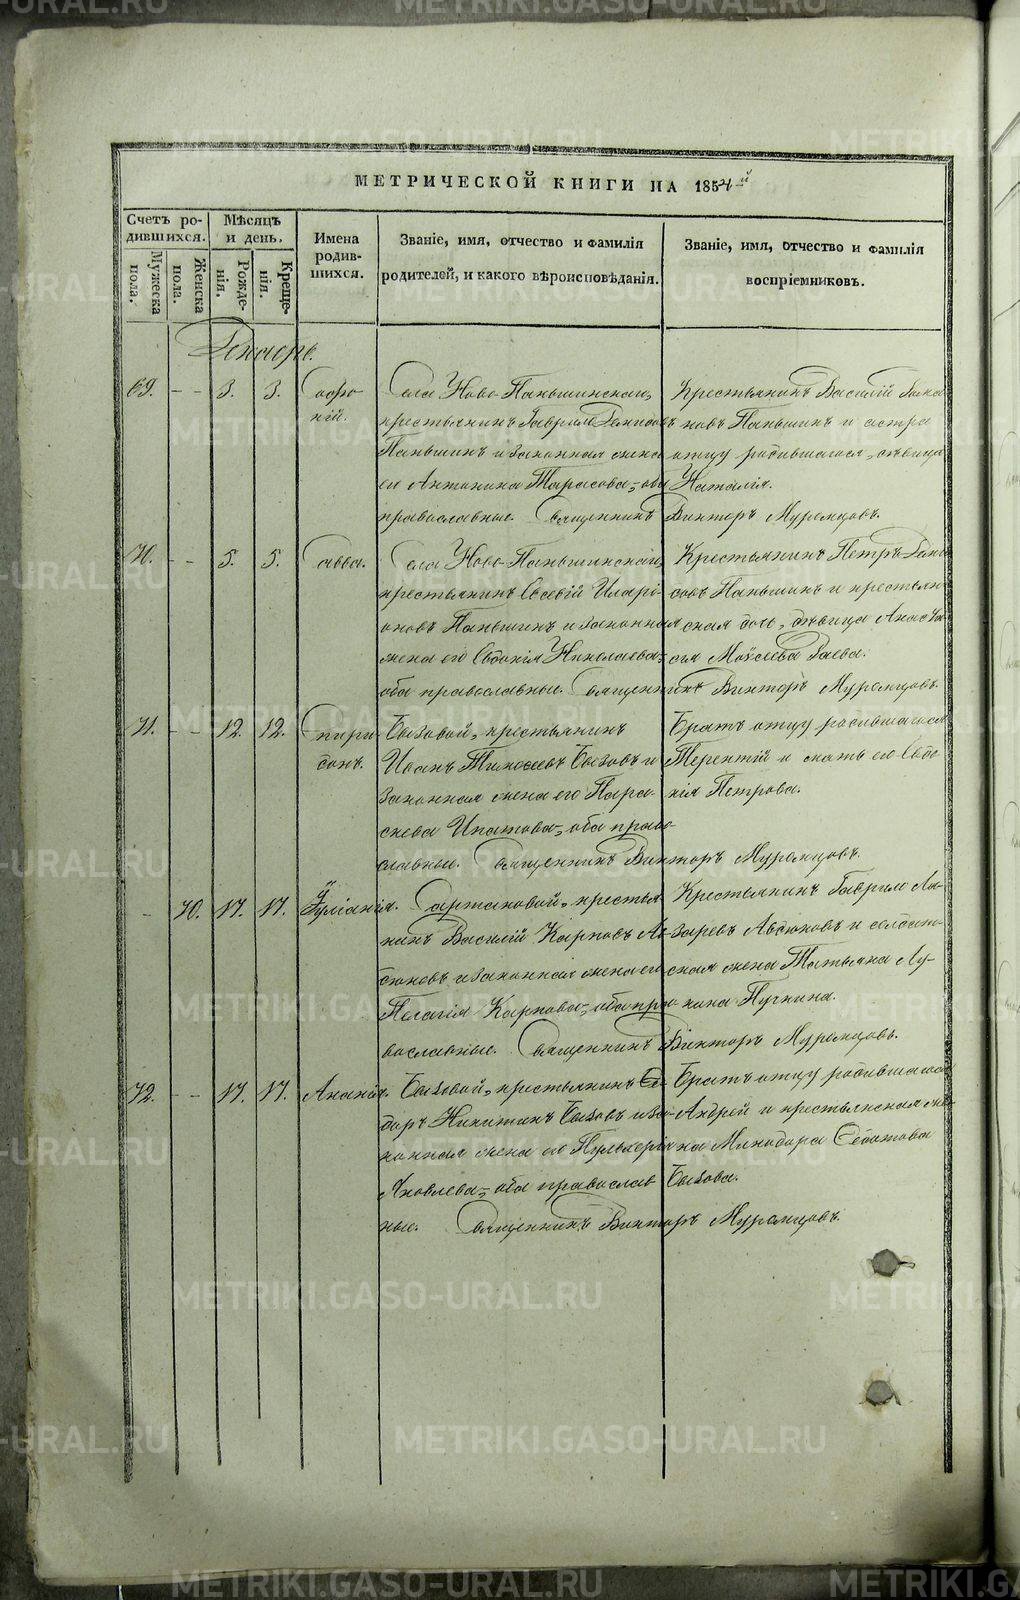 МЕТРИЧЕСКОЙ КНИГИ НА 1854й
Счетъ родившихся.
Мѣсяцъ и день.
Имена родившихся.
Званіе, имя, отчество и фамилія родителей, и какого вѣроисповѣданія.
Званіе, имя, отчество и фамилія воспріемниковъ.
Мужеска пола.
Женска пола.
Рожденія.
Крещенія.
Декабрь.
69. - - 3. 3. Софроній.
Села Ново-Паньшинскаго,
крестьянинъ Гаврилъ Денисовъ
Паньшинъ и законная жена
его Антонина Тарасова, оба
православные. Священникъ Викторъ Муромцовъ.
Крестьянинъ Василій
Паньшинъ и сестра
отцу родившагося, дѣвица
Наталія.
70. - - 5. 5. Савва.
Села Ново-Паньшинскаго,
крестьянинъ Евсевій Иларіоновъ
Паньшинъ и законная
жена его Евдокія Николаева,
оба православные. Священникъ Викторъ Муромцовъ.
Крестьянинъ Петръ
Паньшинъ и крестьянская
дочь, дѣвица Анастасія
Моѵсеева
71. - - 12. 12. Спиридонъ.
Бызовой, крестьянинъ
Иванъ Тимоѳеевъ Бызовъ и
законная жена его Параскева
Ипатова, оба православные.
Священникъ Викторъ Муромцовъ.
Братъ отцу родившагося
Терентій и мать его Евдокія
Петрова.
- 70. 17. 17. Іуліанія.
Сартаковой, крестьянинъ
Василій Карповъ Авдюковъ
и законная жена его
Пелагія Карпова, оба православные.
Священникъ Викторъ Муромцовъ.
Крестьянинъ Гаврило Лазаревъ
Авдюковъ и солдатская
жена Татьяна Лукина
Пучкина.
72. - - 17. 17. Ананія.
Бызовой, крестьянинъ Ѳедоръ
Никитинъ Бызовъ и законная
жена его Пульхерія
Яковлева, оба православные.
Священникъ Викторъ Муромцовъ.
Братъ отцу родившагося
Андрей и крестьянская жена
Минодора
Бызова.
METRIKI.GASO-URAL.RU